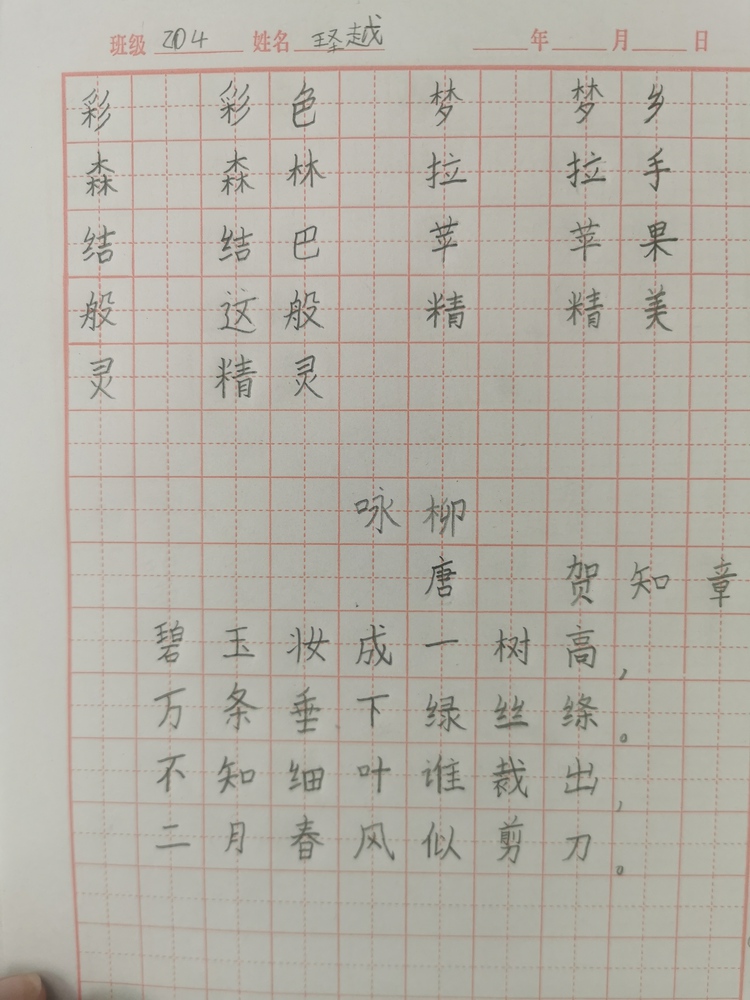 班级 204 姓名 珄越 年 月 日
彩 彩色 梦 梦乡
森 森林 拉 拉手
结 结巴 苹 苹果
般 这般 精 精美
灵 精灵
咏柳
唐 贺知章
碧玉妆成一树高，
万条垂下绿丝绦。
不知细叶谁裁出，
二月春风似剪刀。